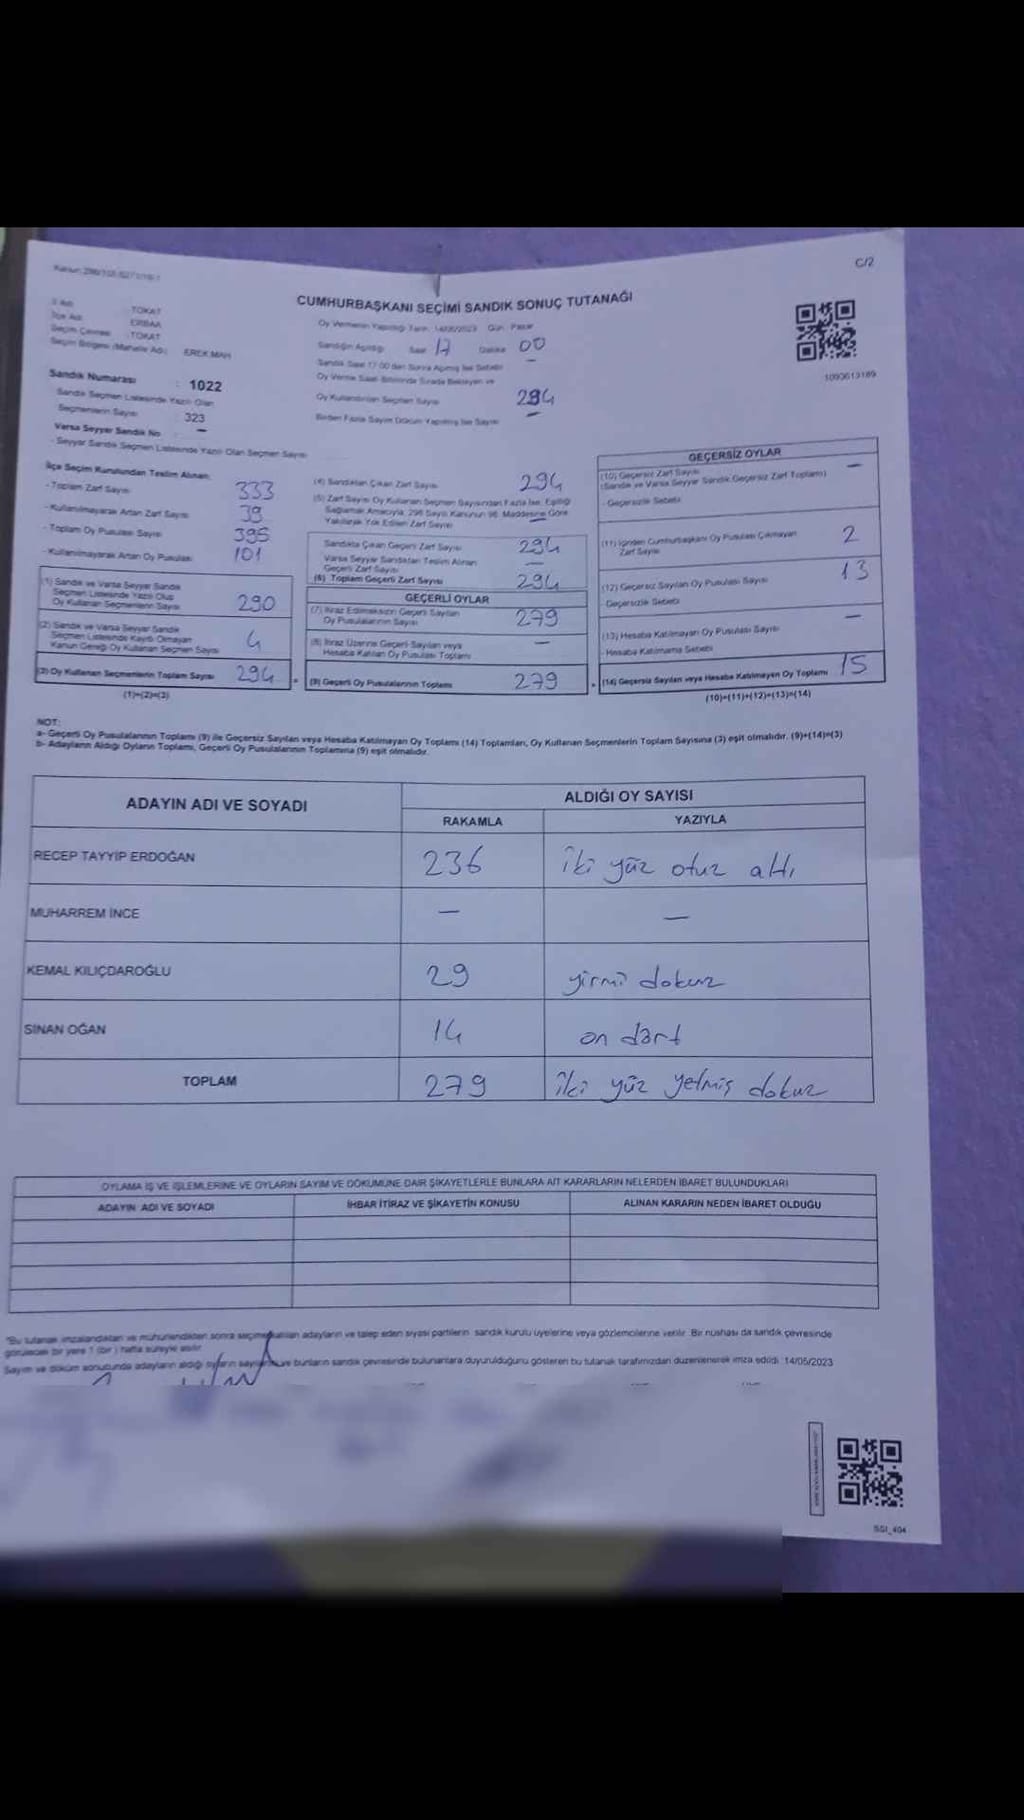 C/2
CUMHURBAŞKANI SEÇİMİ SANDIK SONUÇ TUTANAĞI
İl Adı : TOKAT
İlçe Adı : ERBAA
Seçim Çevresi : TOKAT
Seçim Bölgesi (Mahalle Adı) : EREK MAH
Sandık Numarası : 1022
Sandık Seçmen Listesinde Yazılı Olan
Seçmenlerin Sayısı : 323
Varsa Seyyar Sandık No : —
- Seyyar Sandık Seçmen Listesinde Yazılı Olan Seçmen Sayısı
Oy Vermenin Yapıldığı Tarih: 14/05/2023 Gün: Pazar
Sandığın Açıldığı Saat 17 Dakika 00
Sandık Saat 17.00'den Sonra Açılmış İse Sebebi —
Oy Verme Saati Bitiminde Sırada Bekleyen ve
Oy Kullandırılan Seçmen Sayısı 294
Birden Fazla Sayım Döküm Yapılmış İse Sayısı —
1093613189
İlçe Seçim Kurulundan Teslim Alınan:
- Toplam Zarf Sayısı 333
- Kullanılmayarak Artan Zarf Sayısı 39
- Toplam Oy Pusulası Sayısı 395
- Kullanılmayarak Artan Oy Pusulası 101
(1) Sandık ve Varsa Seyyar Sandık
Seçmen Listesinde Yazılı Olup
Oy Kullanan Seçmenlerin Sayısı 290
(2) Sandık ve Varsa Seyyar Sandık
Seçmen Listesinde Kayıtlı Olmayan
Kanun Gereği Oy Kullanan Seçmen Sayısı 4
(3) Oy Kullanan Seçmenlerin Toplam Sayısı 294
(1)+(2)=(3)
(4) Sandıktan Çıkan Zarf Sayısı 294
(5) Zarf Sayısı Oy Kullanan Seçmen Sayısından Fazla İse, Eşitliği
Sağlamak Amacıyla, 298 Sayılı Kanunun 98. Maddesine Göre
Yakılarak Yok Edilen Zarf Sayısı —
Sandıkta Çıkan Geçerli Zarf Sayısı 294
Varsa Seyyar Sandıktan Teslim Alınan
Geçerli Zarf Sayısı —
(6) Toplam Geçerli Zarf Sayısı 294
GEÇERLİ OYLAR
(7) İtiraz Edilmeksizin Geçerli Sayılan
Oy Pusulalarının Sayısı 279
(8) İtiraz Üzerine Geçerli Sayılan veya
Hesaba Katılan Oy Pusulası Toplamı —
(9) Geçerli Oy Pusulalarının Toplamı 279
GEÇERSİZ OYLAR
(10) Geçersiz Zarf Sayısı —
(Sandık ve Varsa Seyyar Sandık Geçersiz Zarf Toplamı)
- Geçersizlik Sebebi
(11) İçinden Cumhurbaşkanı Oy Pusulası Çıkmayan
Zarf Sayısı 2
(12) Geçersiz Sayılan Oy Pusulası Sayısı 13
- Geçersizlik Sebebi
(13) Hesaba Katılmayan Oy Pusulası Sayısı —
- Hesaba Katılmama Sebebi
(14) Geçersiz Sayılan veya Hesaba Katılmayan Oy Toplamı 15
(10)+(11)+(12)+(13)=(14)
NOT:
a- Geçerli Oy Pusulalarının Toplamı (9) ile Geçersiz Sayılan veya Hesaba Katılmayan Oy Toplamı (14) Toplamları, Oy Kullanan Seçmenlerin Toplam Sayısına (3) eşit olmalıdır. (9)+(14)=(3)
b- Adayların Aldığı Oyların Toplamı, Geçerli Oy Pusulalarının Toplamına (9) eşit olmalıdır.
ADAYIN ADI VE SOYADI
ALDIĞI OY SAYISI
RAKAMLA YAZIYLA
RECEP TAYYİP ERDOĞAN 236 iki yüz otuz altı
MUHARREM İNCE — —
KEMAL KILIÇDAROĞLU 29 yirmi dokuz
SİNAN OĞAN 14 on dört
TOPLAM 279 iki yüz yetmiş dokuz
OYLAMA İŞ VE İŞLEMLERİNE VE OYLARIN SAYIM VE DÖKÜMÜNE DAİR ŞİKAYETLERLE BUNLARA AİT KARARLARIN NELERDEN İBARET BULUNDUKLARI
ADAYIN ADI VE SOYADI İHBAR İTİRAZ VE ŞİKAYETİN KONUSU ALINAN KARARIN NEDEN İBARET OLDUĞU
*Bu tutanak imzalandıktan ve mühürlendikten sonra seçime katılan adayların ve talep eden siyasi partilerin sandık kurulu üyelerine veya gözlemcilerine verilir. Bir nüshası da sandık çevresinde
görülecek bir yere 1 (bir) hafta süreyle asılır.
Sayım ve döküm sonucunda adayların aldığı oyların sayısını ve bunların sandık çevresinde bulunanlara duyurulduğunu gösteren bu tutanak tarafımızdan düzenlenerek imza edildi. 14/05/2023
SGI_404